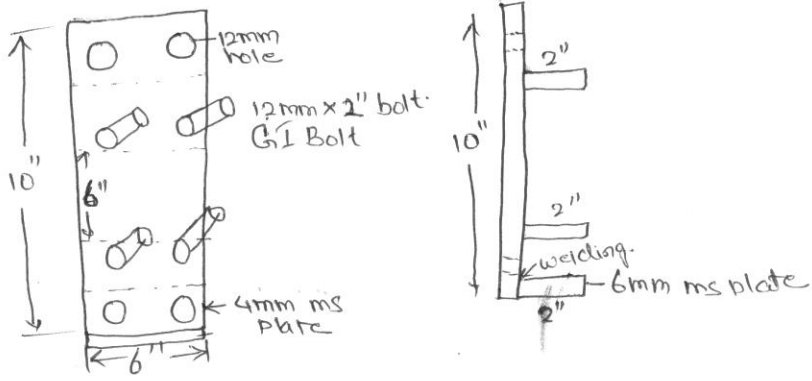 12mm
hole
12mm × 2" bolt.
GI Bolt
10"
6"
4mm ms
plate
6"
2"
10"
2"
welding.
6mm ms plate
2"